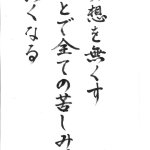 想を無くす
とで全ての苦しみ
くなる